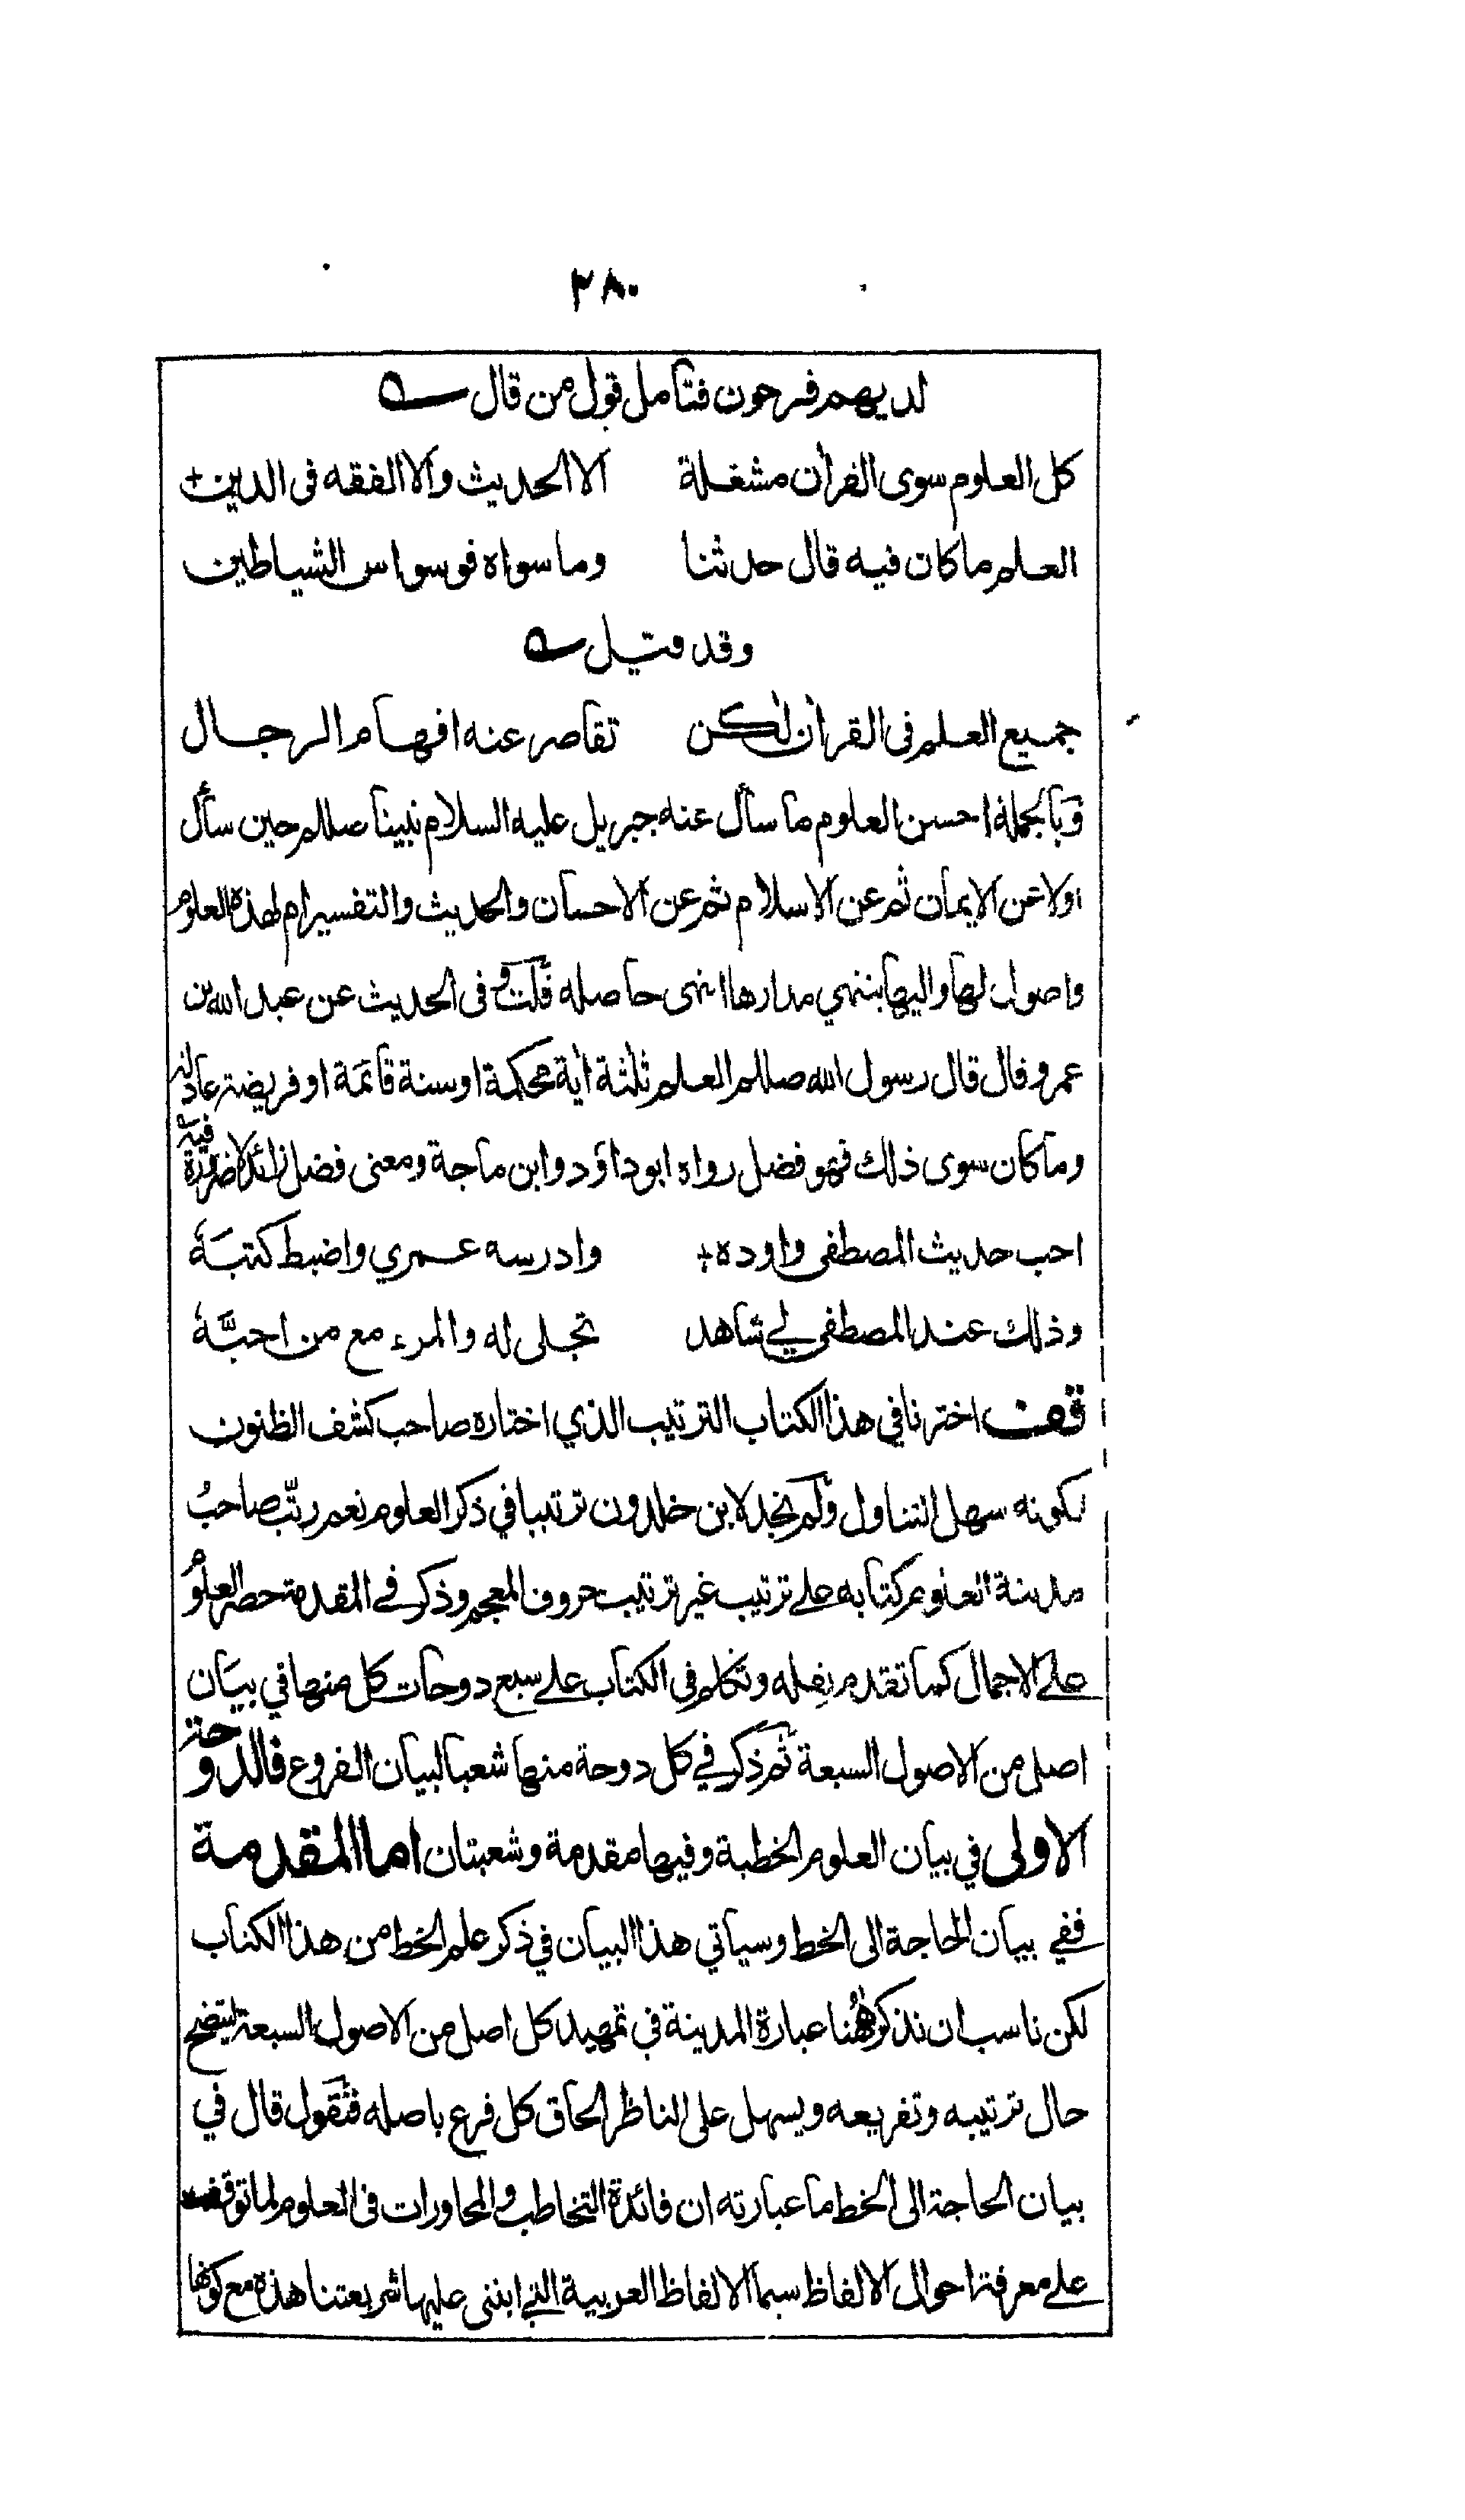 ٢٨٠
لديهم فرحون فتأمل قول من قال
كل العلوم سوى القرأن مشغلة الا الحديث والا الفقه فى الدين+
العلم ما كان فيه قال حدثنا وما سواه فوسواس الشياطين
وقد قيل
جميع العلم فى القرأن لكن تقاصر عنه افهام الرجال
وبالجملة احسن العلوم ما سأل عنه جبريل عليه السلام نبينا صللم حين سأل
اولا عن الايمان ثم عن الاسلام ثم عن الاحسان والحديث والتفسير ام لهذه العلوم
واصول لها واليها ينتهي مدارها انتهى حاصله قلت وفى الحديث عن عبد الله بن
عمرو قال قال رسول الله صللم العلم ثلثة أية محكمة او سنة قائمة او فريضة عادلة
وما كان سوى ذلك فهو فضل رواه ابو داؤد وابن ماجة ومعنى فضل زائد لا ضرورة فيه
احب حديث المصطفى واوده+ وادرسه عمري واضبط كتبَهٗ
وذلك عند المصطفى لي شاهد تجلى له والمرء مع من احبَّهٗ
قف اخترنا في هذا الكتاب الترتيب الذي اختاره صاحب كشف الظنون
لكونه سهل التناول ولم نجد لابن خلدون ترتيبا في ذكر العلوم نعم رتّب صاحبُ
مدينة العلوم كتابه على ترتيب غير ترتيب حروف المعجم وذكر في المقدمة حصر العلوم
على الاجمال كما تقدم نقله وتكلم فى الكتاب على سبع دوحات كل منها في بيان
اصل من الاصول السبعة ثم ذكر في كل دوحة منها شعبا لبيان الفروع فالدوحة
الاولى في بيان العلوم الخطية وفيها مقدمة وشعبتان اما المقدمة
ففي بيان الحاجة الى الخط وسيأتي هذا البيان في ذكر علم الخط من هذا الكتاب
لكن ناسب ان نذكر ههنا عبارة المدينة في تمهيد كل اصل من الاصول السبعة ليتضح
حال ترتيبه وتفريعه ويسهل على الناظر الحاق كل فرع باصله فنقول قال في
بيان الحاجة الى الخط ما عبارته ان فائدة التخاطب والمحاورات فى العلوم لما توقفت
على معرفة احوال الالفاظ سيما الالفاظ العربية التي ابتنى عليها شريعتنا هذه مع كونها